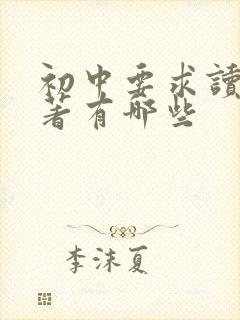 初中要求讀
著有哪些
李沫夏